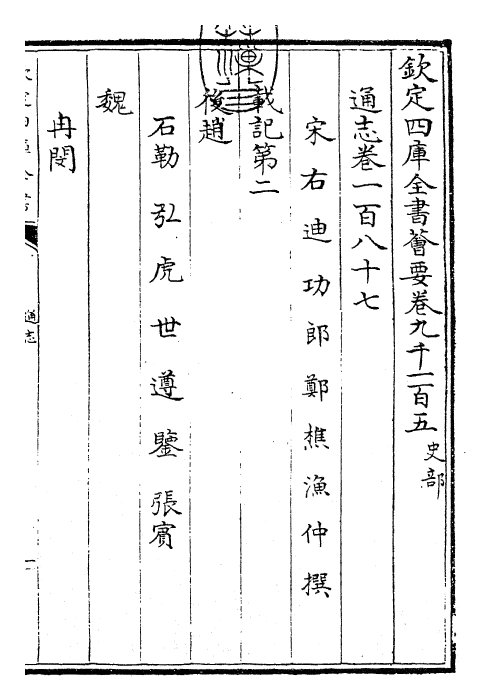 欽定四庫全書薈要卷九千一百五
史部
通志卷一百八十七
宋右迪功郎鄭樵漁仲撰
載記第二
後趙
石勒 弘 虎 世 遵 鑒 張賓
魏
冉閔
通志